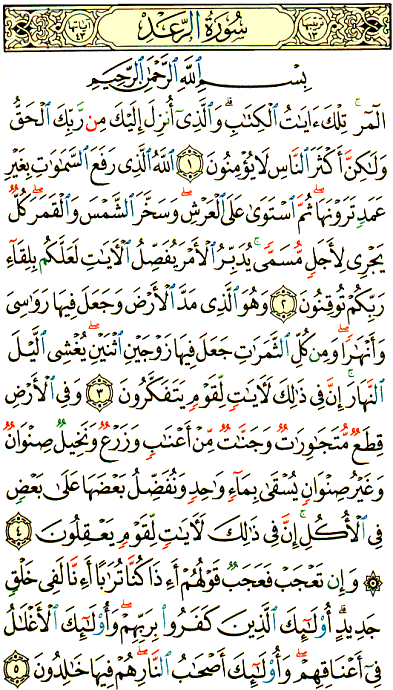 ترتيبها ١٣ سورة الرعد آياتها ٤٣
بِسْمِ ٱللَّهِ ٱلرَّحْمَٰنِ ٱلرَّحِيمِ
الٓمٓر ۚ تِلْكَ ءَايَٰتُ ٱلْكِتَٰبِ ۗ وَٱلَّذِىٓ أُنزِلَ إِلَيْكَ مِن رَّبِّكَ ٱلْحَقُّ
وَلَٰكِنَّ أَكْثَرَ ٱلنَّاسِ لَا يُؤْمِنُونَ ١ ٱللَّهُ ٱلَّذِى رَفَعَ ٱلسَّمَٰوَٰتِ بِغَيْرِ
عَمَدٍ تَرَوْنَهَا ۖ ثُمَّ ٱسْتَوَىٰ عَلَى ٱلْعَرْشِ ۖ وَسَخَّرَ ٱلشَّمْسَ وَٱلْقَمَرَ ۖ كُلٌّ
يَجْرِى لِأَجَلٍ مُّسَمًّى ۚ يُدَبِّرُ ٱلْأَمْرَ يُفَصِّلُ ٱلْءَايَٰتِ لَعَلَّكُم بِلِقَآءِ
رَبِّكُمْ تُوقِنُونَ ٢ وَهُوَ ٱلَّذِى مَدَّ ٱلْأَرْضَ وَجَعَلَ فِيهَا رَوَٰسِىَ
وَأَنْهَٰرًا ۖ وَمِن كُلِّ ٱلثَّمَرَٰتِ جَعَلَ فِيهَا زَوْجَيْنِ ٱثْنَيْنِ ۖ يُغْشِى ٱلَّيْلَ
ٱلنَّهَارَ ۚ إِنَّ فِى ذَٰلِكَ لَءَايَٰتٍ لِّقَوْمٍ يَتَفَكَّرُونَ ٣ وَفِى ٱلْأَرْضِ
قِطَعٌ مُّتَجَٰوِرَٰتٌ وَجَنَّٰتٌ مِّنْ أَعْنَٰبٍ وَزَرْعٌ وَنَخِيلٌ صِنْوَانٌ
وَغَيْرُ صِنْوَانٍ يُسْقَىٰ بِمَآءٍ وَٰحِدٍ وَنُفَضِّلُ بَعْضَهَا عَلَىٰ بَعْضٍ
فِى ٱلْأُكُلِ ۚ إِنَّ فِى ذَٰلِكَ لَءَايَٰتٍ لِّقَوْمٍ يَعْقِلُونَ ٤
۞ وَإِن تَعْجَبْ فَعَجَبٌ قَوْلُهُمْ أَءِذَا كُنَّا تُرَٰبًا أَءِنَّا لَفِى خَلْقٍ
جَدِيدٍ ۗ أُو۟لَٰٓئِكَ ٱلَّذِينَ كَفَرُوا۟ بِرَبِّهِمْ ۖ وَأُو۟لَٰٓئِكَ ٱلْأَغْلَٰلُ
فِىٓ أَعْنَاقِهِمْ ۖ وَأُو۟لَٰٓئِكَ أَصْحَٰبُ ٱلنَّارِ ۖ هُمْ فِيهَا خَٰلِدُونَ ٥